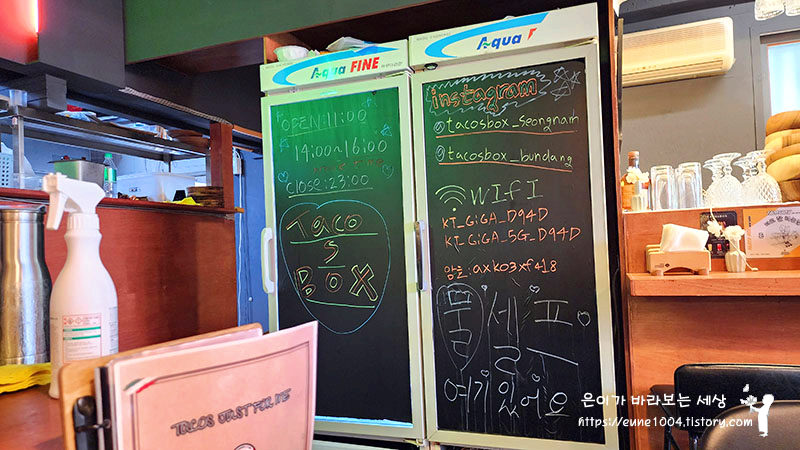 Aqua FINE
Aqua F
OPEN:11:00
14:00~16:00
CLOSE:23:00
Taco
S
BOX
instagram
@tacosbox_seongnam
@tacosbox_bundang
WIFI
KT_GiGA_D94D
KT_GiGA_5G_D94D
암호:axk03xf418
물 셀프.
여기있어요
은이가 바라보는 세상
https://eune1004.tistory.com